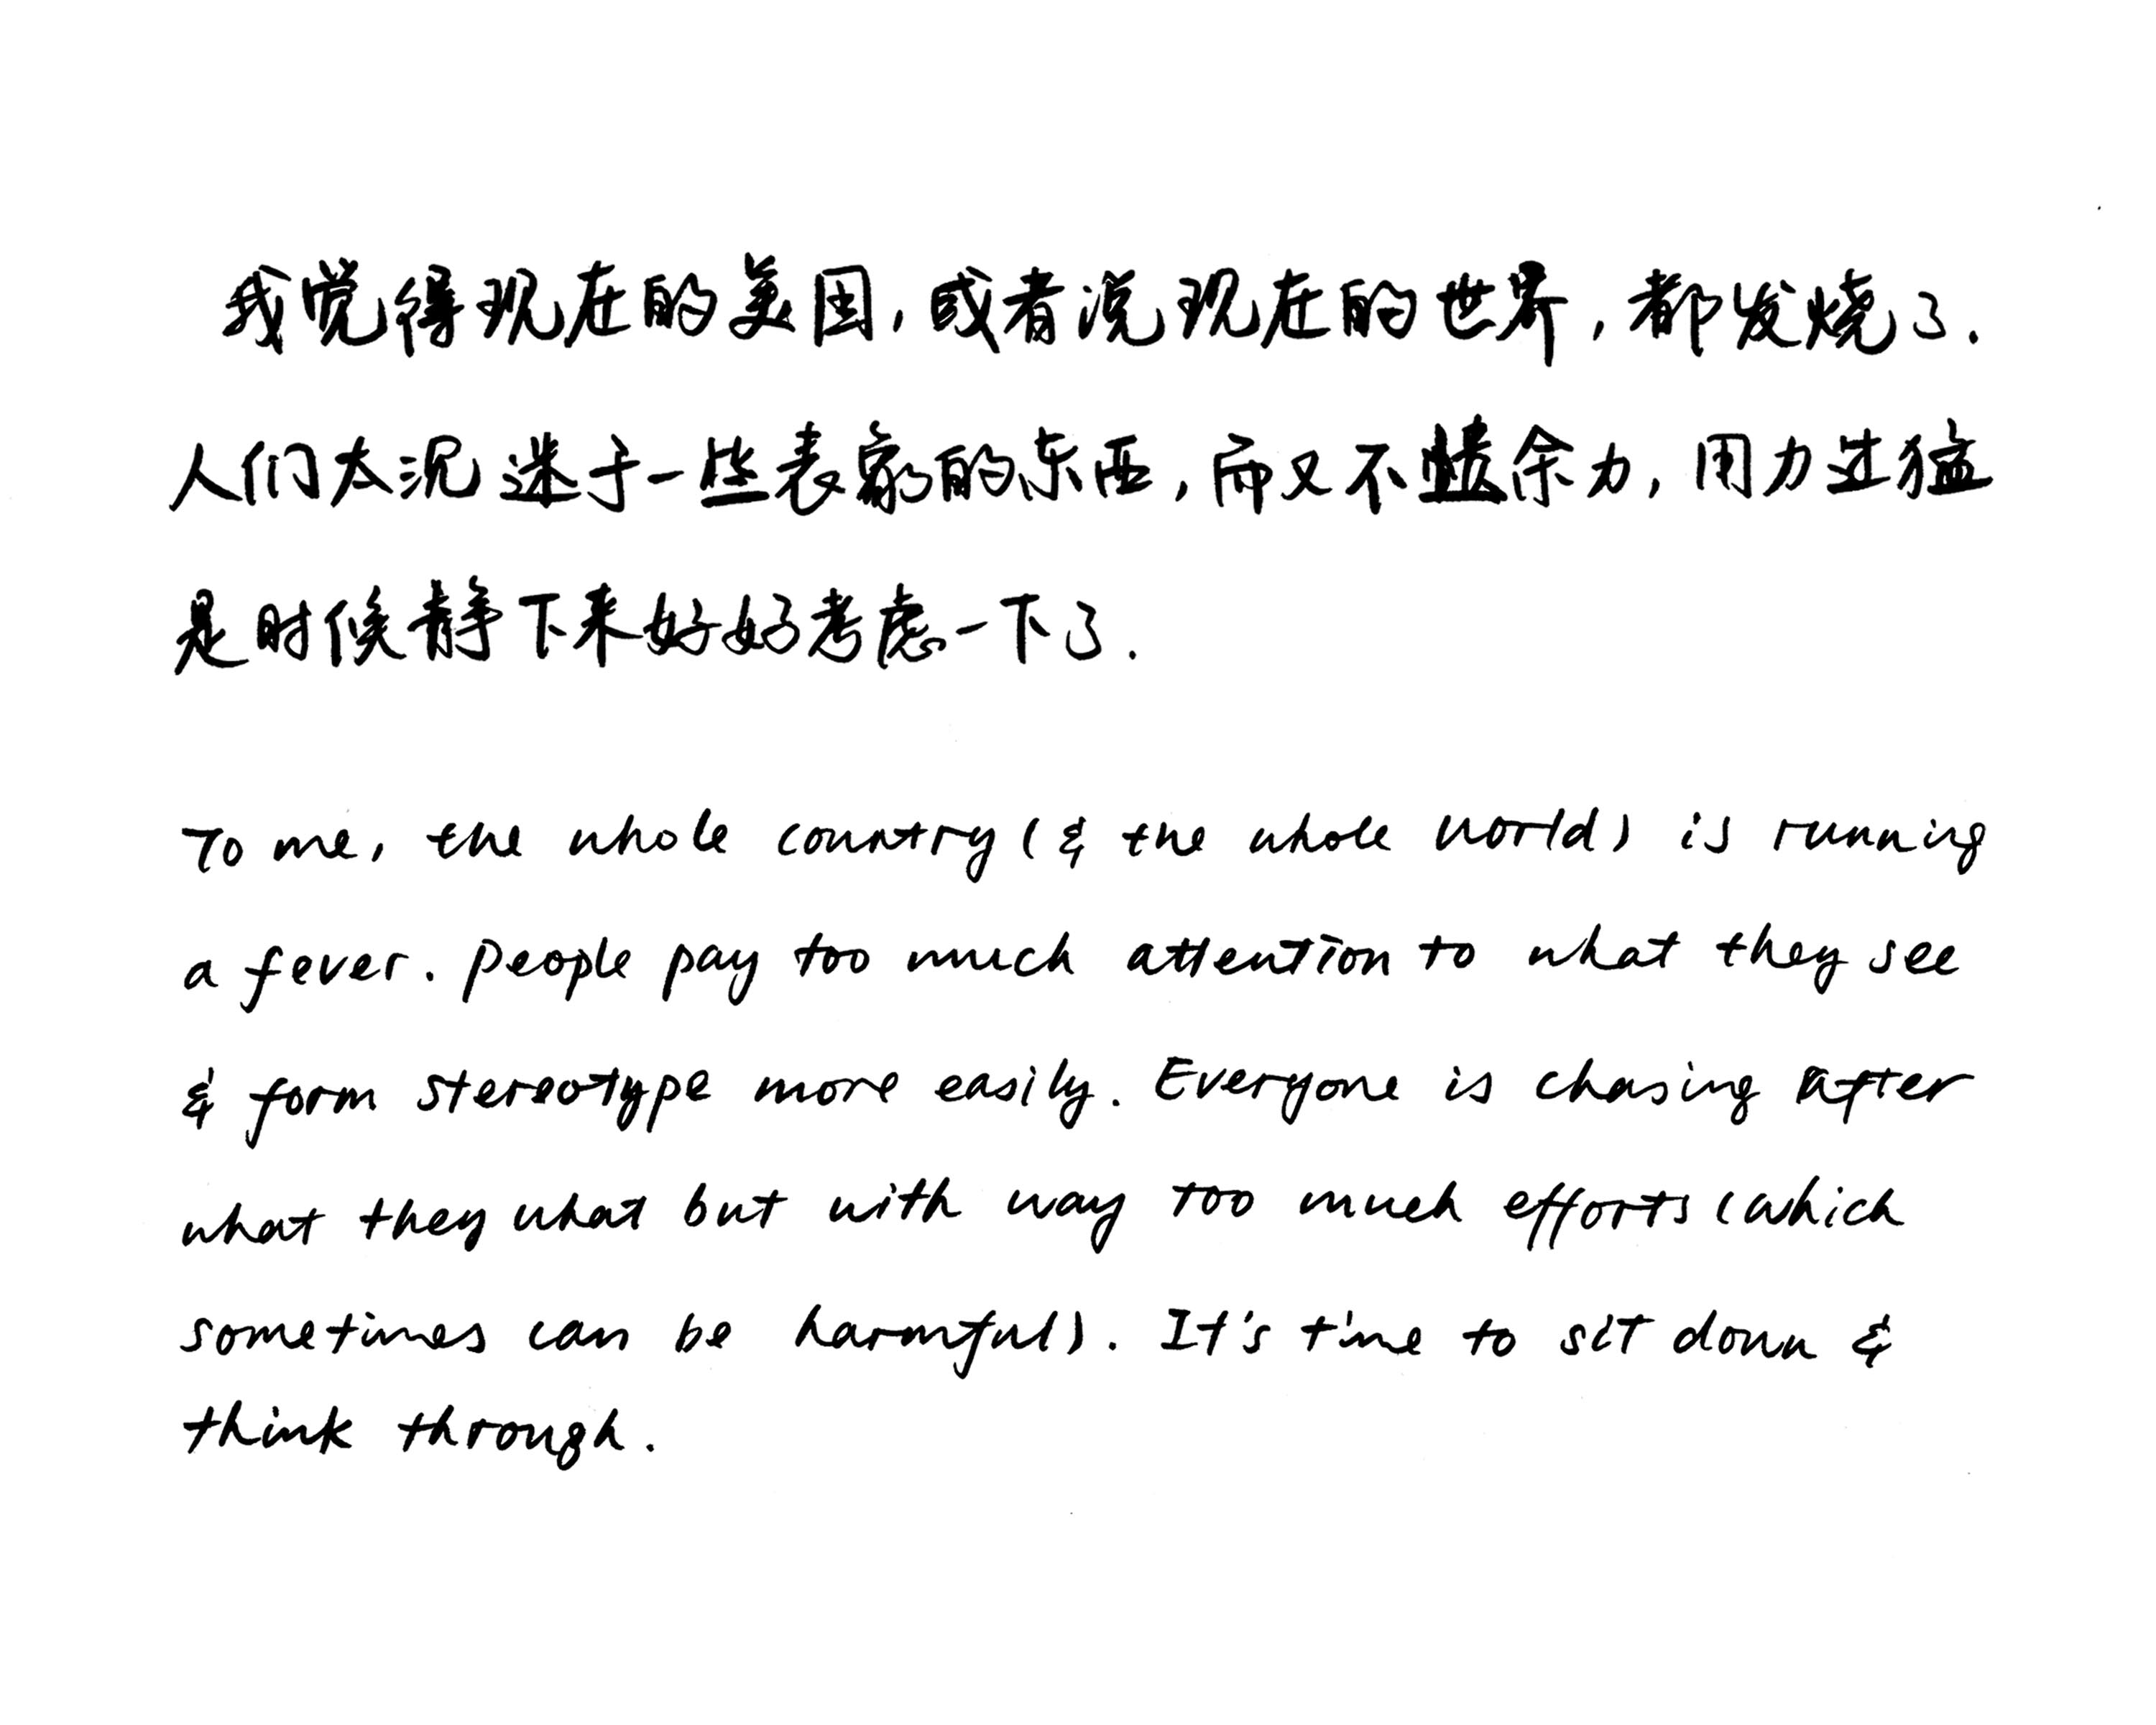 我觉得现在的美国,或者说现在的世界,都发烧了.
人们太沉迷于一些表象的东西,而又不遗余力,用力过猛
是时候静下来好好考虑一下了.
To me, the whole country (& the whole world) is running
a fever. People pay too much attention to what they see
& form stereotype more easily. Everyone is chasing after
what they what but with way too much efforts (which
sometimes can be harmful). It's time to sit down &
think through.